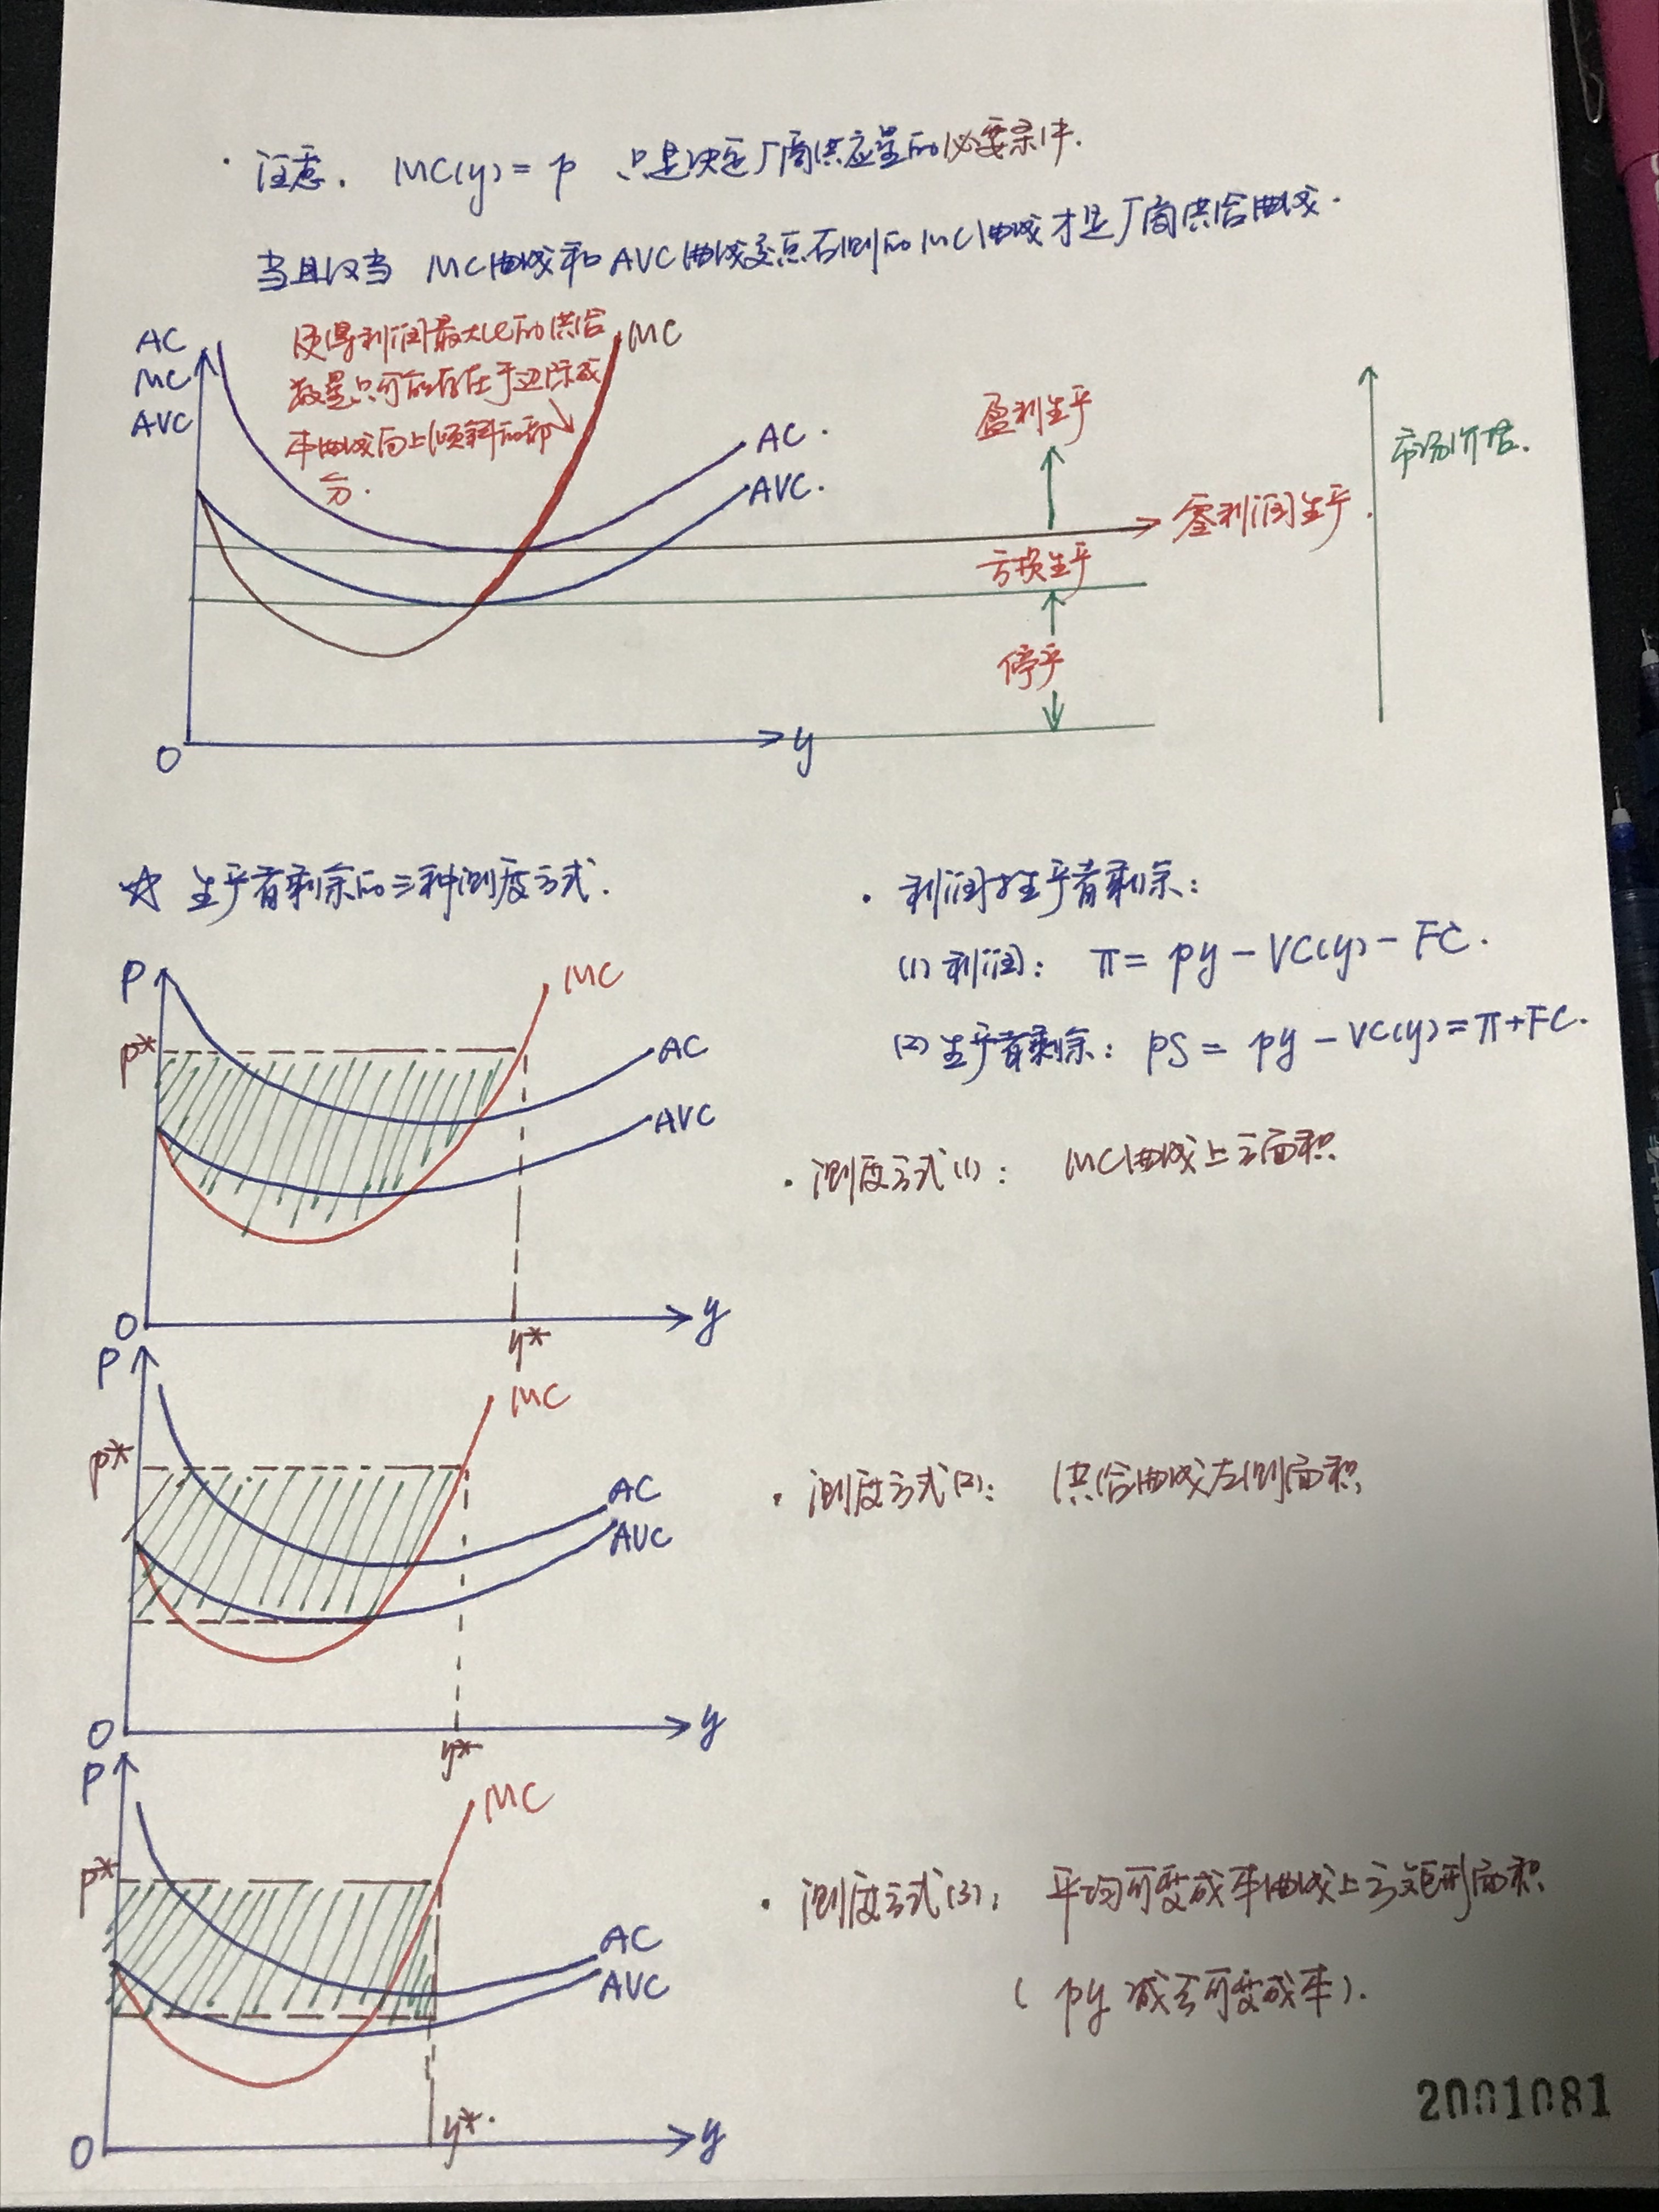 · 注意. MC(y) = p 只是决定厂商供应量的必要条件.
当且仅当 MC曲线和AVC曲线交点右侧的MC曲线才是厂商供给曲线.
AC
MC
AVC
使得利润最大化的供给
数量只可能存在于边际成
本曲线向上倾斜的部
分.
MC
AC.
AVC.
盈利生产
零利润生产.
亏损生产
停产
市场价格.
O
y
☆ 生产者剩余的三种测度方式.
· 利润与生产者剩余:
(1) 利润: π = py - VC(y) - FC.
(2) 生产者剩余: PS = py - VC(y) = π + FC.
P
p*
MC
AC
AVC
O
y*
y
· 测度方式(1): MC曲线上方面积
P
p*
MC
AC
AVC
O
y*
y
· 测度方式(2): 供给曲线左侧面积
P
p*
MC
AC
AVC
O
y*.
y
· 测度方式(3): 平均可变成本曲线上方矩形面积
( py 减去可变成本).
2001081